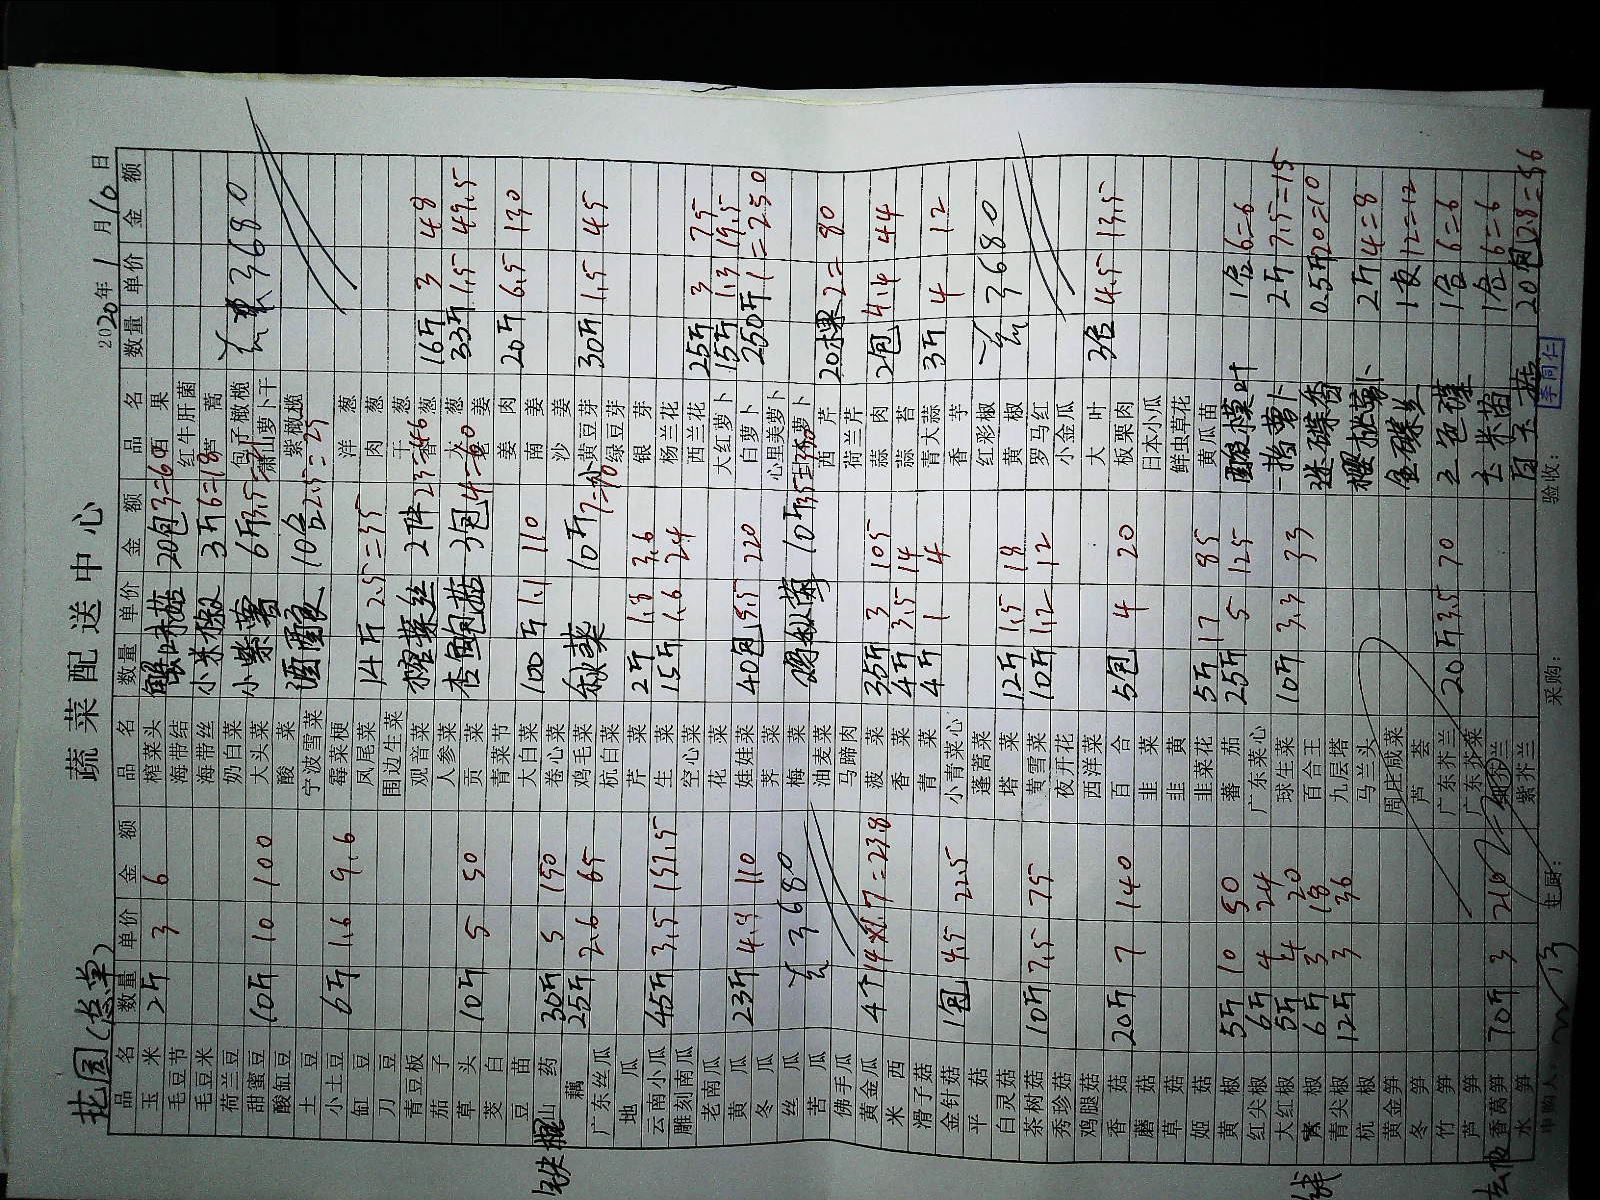 蔬菜配送中心
花园(总单) 2020年1月10日
品名 数量 单价 金额 品名 数量 单价 金额 品名 数量 单价 金额
玉米 2斤 3 6 榨菜头 蟹味菇 20包3=60 西果
毛豆节 海带结 小米椒 3斤6=18 红牛肝菌
毛豆米 海带丝 蒿
荷兰豆 奶白菜 小紫薯 6斤3.5=21 包子橄榄 3680
甜蜜豆 10斤 10 100 大头菜 萧山萝卜干
酸缸豆 酸菜 酒酿 10合2.5=25 紫橄榄
土豆 宁波雪菜
小土豆 6斤 1.6 9.6 霉菜梗 洋葱
缸豆 凤尾菜 14斤 2.5=35 肉葱
刀豆 围边生菜 干葱
青豆板 观音菜 榨菜丝 香葱 16斤 3 48
茄子 人参菜 大葱 33斤 1.5 49.5
草头 10斤 5 50 贡菜 杏鲍菇 3包 老姜
茭白 青菜节 姜肉 20斤 6.5 130
豆苗 大白菜 100斤 1.1 110 南姜
铁棍山药 30斤 5 150 卷心菜 沙姜
藕 25斤 2.6 65 鸡毛菜 秋葵 10斤 黄豆芽 30斤 1.5 45
广东丝瓜 杭白菜 绿豆芽
地瓜 芹菜 2斤 1.8 3.6 银芽
云南小瓜 45斤 3.5 157.5 生菜 15斤 1.6 24 杨兰花
雕刻南瓜 空心菜 西兰花 25斤 3 75
老南瓜 花菜 大红萝卜 15斤 1.3 19.5
黄瓜 23斤 4.8 110 娃娃菜 40包 5.5 220 白萝卜 250斤1=250
冬瓜 荠菜 心里美萝卜
丝瓜 3680 梅菜 10斤
苦瓜 油麦菜 西芹 20棵 2= 80
佛手瓜 马蹄肉 荷兰芹
黄金瓜 4个14×1.7=23.8 菠菜 35斤 3 105 蒜肉 2包 4.4 44
米西 香菜 4斤 3.5 14 蒜苔
滑子菇 青菜 4斤 1 4 青大蒜 3斤 4 12
金针菇 1包 4.5 22.5 小青菜心 香芋
平菇 蓬蒿菜 红彩椒 3680
白灵菇 塔菜 12斤 1.5 18 黄椒
茶树菇 10斤 7.5 75 黄雪菜 10斤 1.2 12 罗马红
秀珍菇 夜开花 小金瓜
鸡腿菇 西洋菜 大叶
香菇 20斤 7 140 百合 5包 4 20 板栗肉 3合 4.5 13.5
蘑菇 韭菜 日本小瓜
草菇 韭黄 鲜虫草花
姬菇 韭菜花 5斤 17 85 黄瓜苗
黄椒 5斤 10 50 蕃茄 25斤 5 125 1合6=6
红尖椒 6斤 4 24 广东菜心 一指萝卜 2斤 7.5=15
大红椒 5斤 4 20 球生菜 10斤 3.3 33 迷碟香 0.5斤20=10
椒 6斤 3 18 百合王 樱桃萝卜 2斤4=8
青尖椒 12斤 3 36 九层塔
杭椒 马兰头 金碟丝 12=12
黄金笋 周庄咸菜
冬笋 芦荟 三色碟 1合 6=6
竹笋 广东芥兰 20斤3.5 70
芦笋 广东芥菜 玉米苗 1合6=6
香莴笋 70斤 3 210 细芥兰
水笋 紫芥兰 白玉菇 20包2.8=56
申购人: 主厨: 采购: 验收: 李同仁